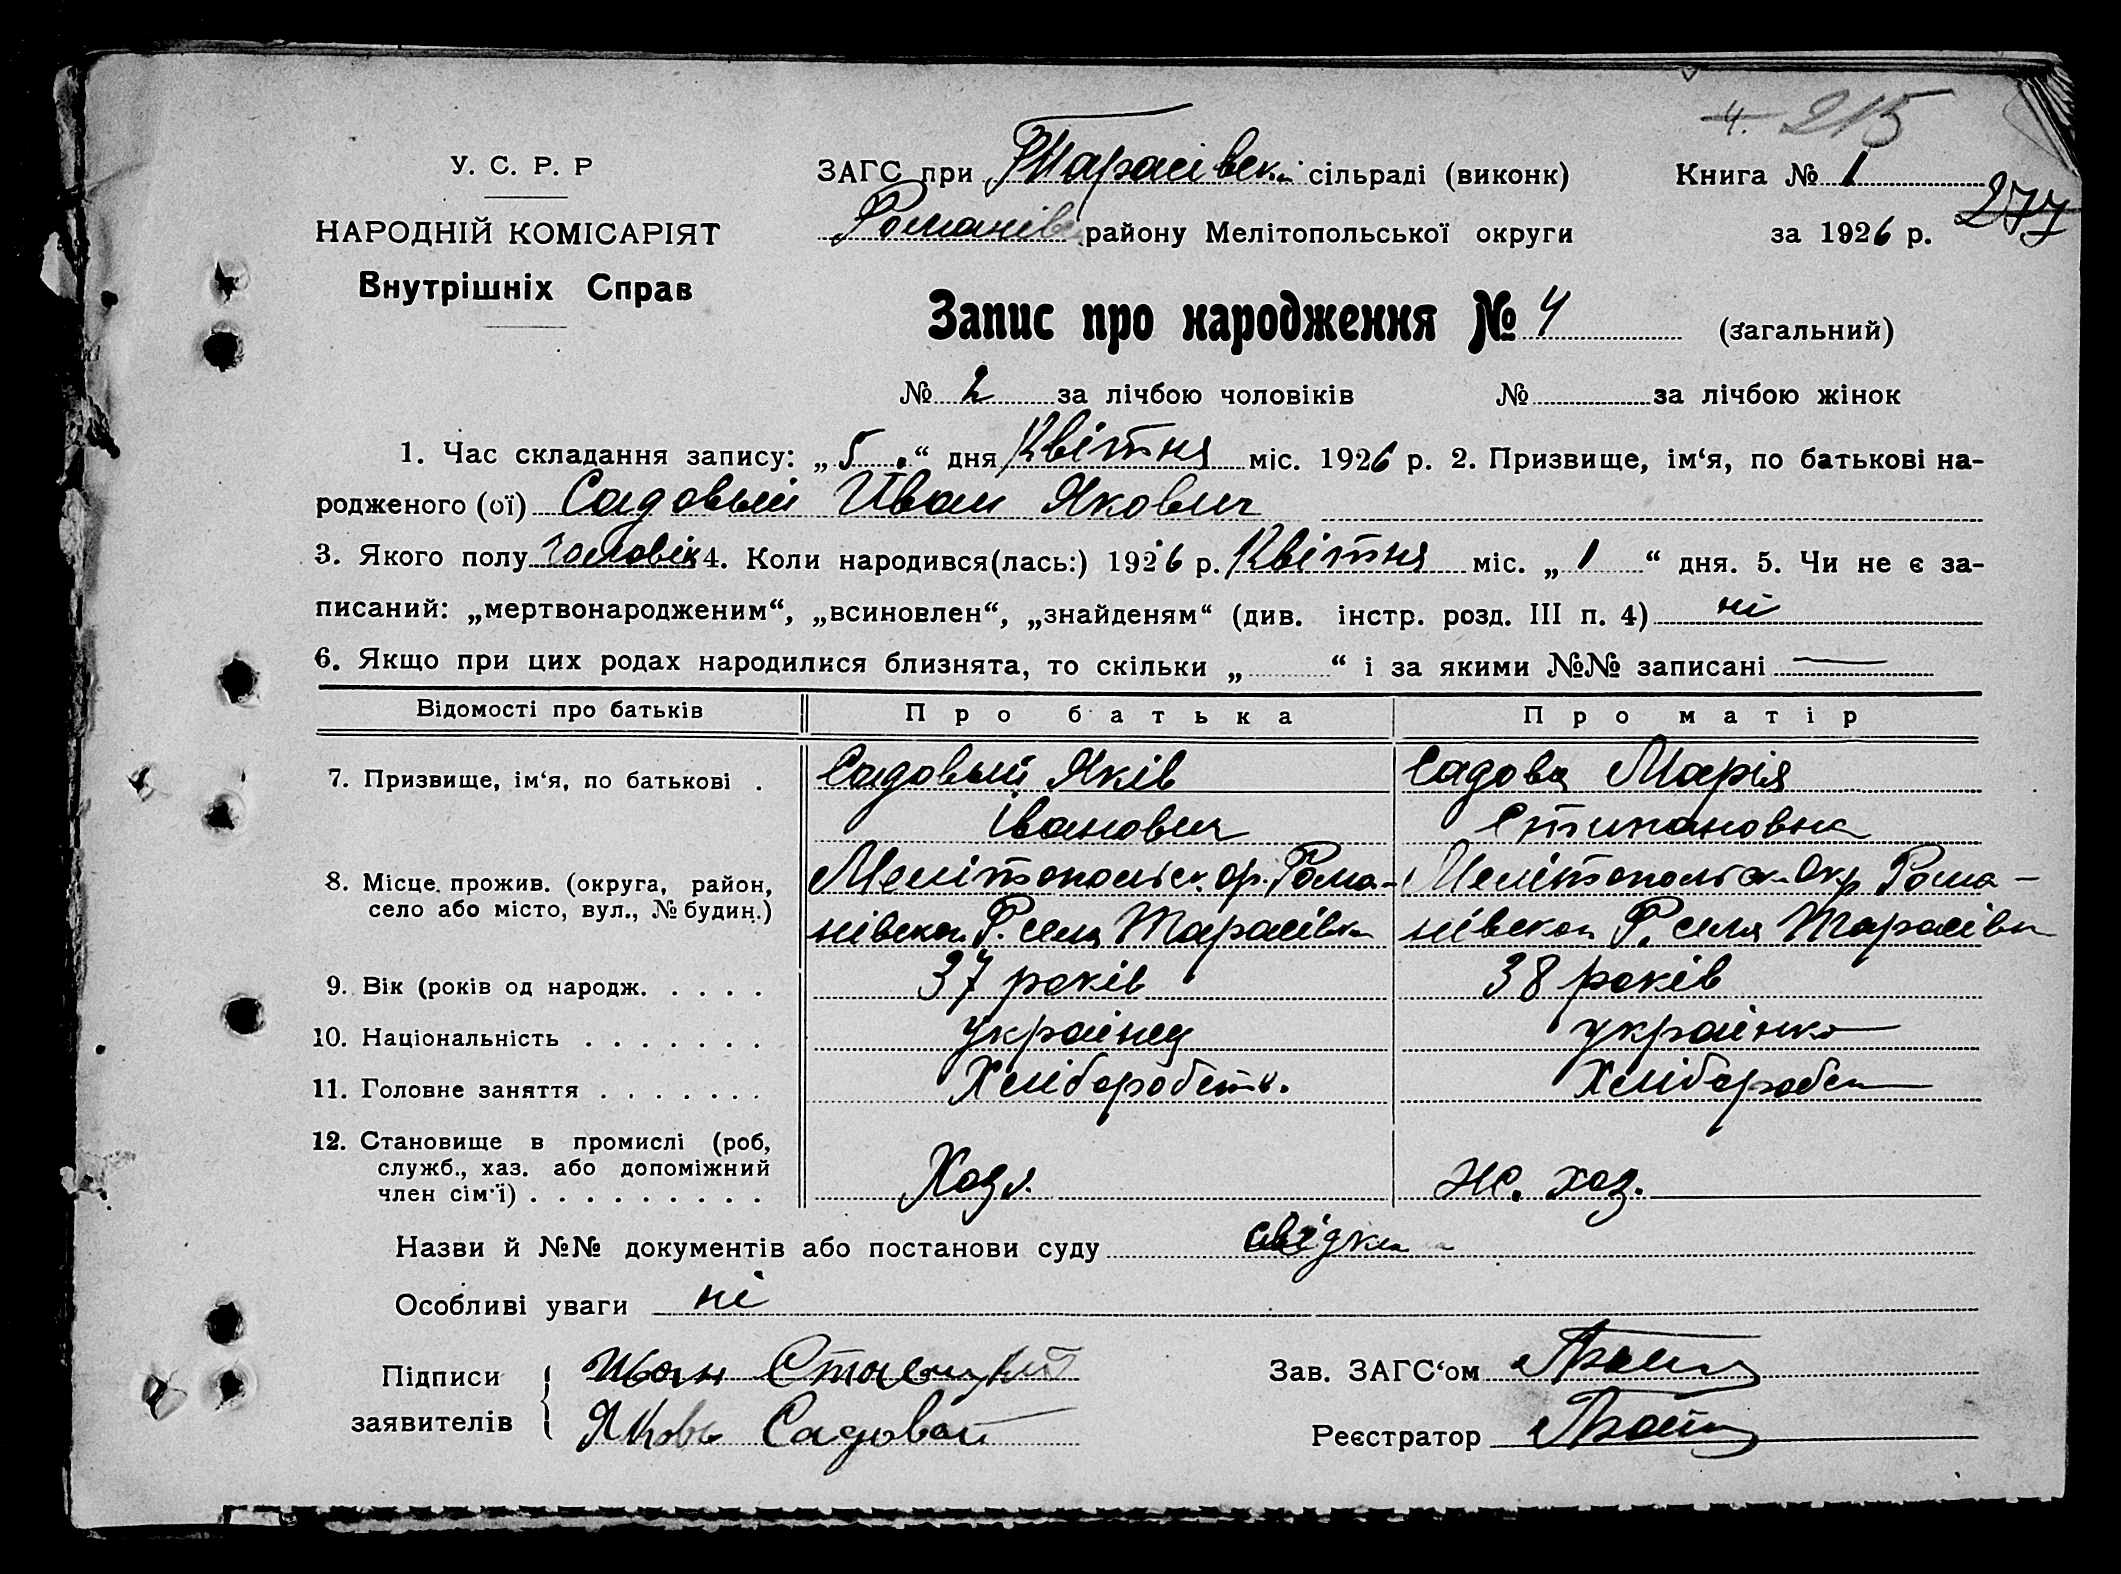 4. 215
У. С. Р. Р
НАРОДНІЙ КОМІСАРІЯТ
Внутрішніх Справ
ЗАГС при Тарасівск. сільраді (виконк) Книга № 1
Романівск району Мелітопольської округи за 1926 р. 277
Запис про народження № 4 (загальний)
№ 2 за лічбою чоловіків № за лічбою жінок
1. Час складання запису: „5“ дня Квітня міс. 1926 р. 2. Призвище, ім‘я, по батькові на-
родженого (ої) Садовый Иван Якович
3. Якого полу чоловік 4. Коли народився(лась:) 1926 р. Квітня міс. „1“ дня. 5. Чи не є за-
писаний: „мертвонародженим“, „всиновлен“, „знайденям“ (див. інстр. розд. III п. 4) ні
6. Якщо при цих родах народилися близнята, то скільки „ “ і за якими №№ записані —
Відомості про батьків Про батька Про матір
7. Призвище, ім‘я, по батькові . Садовый Яків Садова Марія
Іванович Степановна
8. Місце прожив. (округа, район, Мелітопольск. ок. Рома- Мелітопольск. Окр Рома-
село або місто, вул., № будин.) нівскоп Р. села Тарасівк нівскоп Р. села Тарасівк
9. Вік (років од народж. . . . . 37 років 38 років
10. Національність . . . . . . . українец українка
11. Головне заняття . . . . . . . Хліборобств. Хліборобст
12. Становище в промислі (роб,
служб., хаз. або допоміжний
член сім‘ї) . . . . . . . . . Хозя. не. хоз.
Назви й №№ документів або постанови суду свідки
Особливі уваги ні
Підписи Иван Зав. ЗАГС‘ом
заявителів Яковъ Садовой Реєстратор